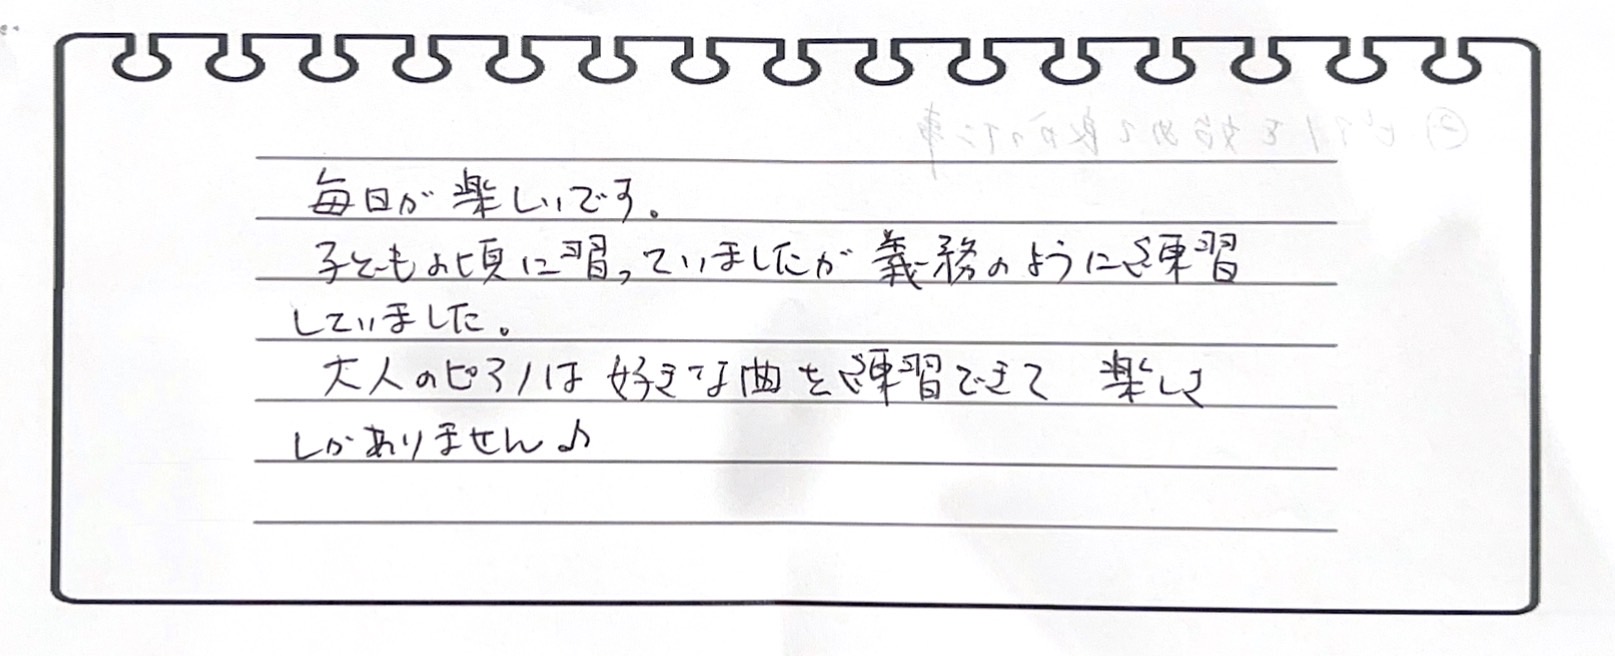 毎日が楽しいです。
子どもの頃に習っていましたが義務のように練習
していました。
大人のピアノは好きな曲を練習できて 楽しさ
しかありません♪